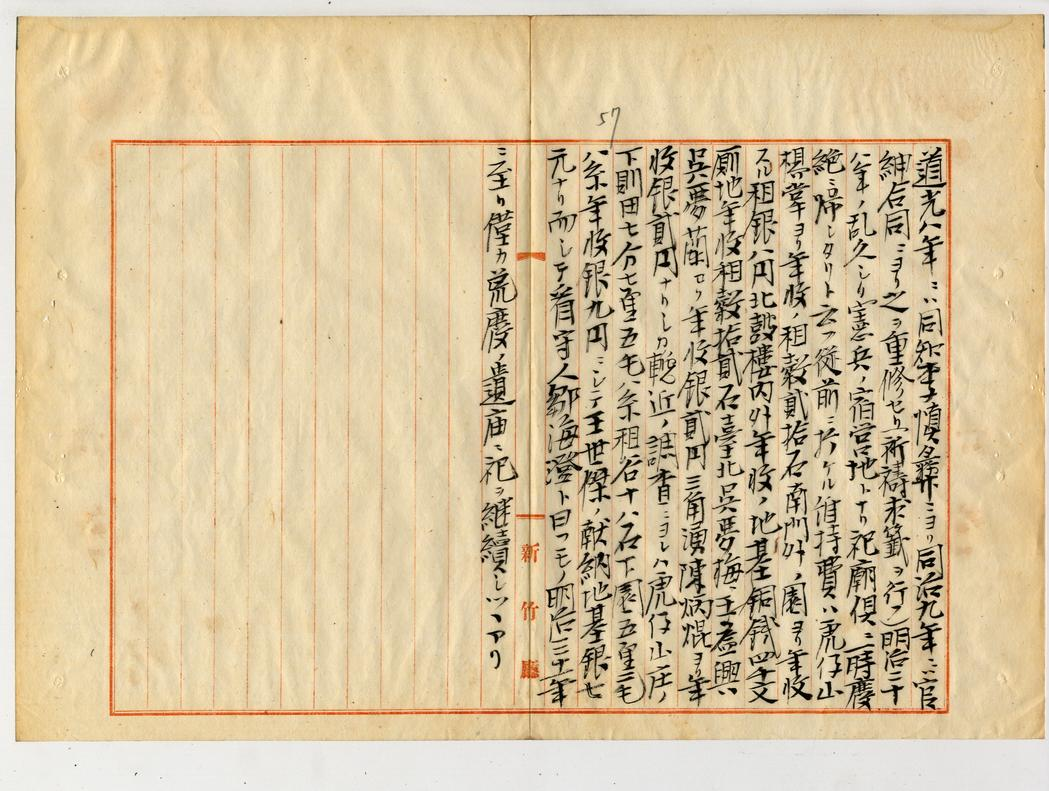 57
道光八年ニハ同知李慎彝ニヨリ同治九年ニハ官
紳合同ニヨリ之ヲ重修セリ祈禱求籤ヲ行フ明治二十
八年ノ乱久シク憲兵ノ宿営地トナリ祀廟倶ニ一時廢
絶ニ帰シタリト云フ従前ニ於ケル維持費ハ虎仔山
楊掌ヨリ年收ノ租穀貳拾石南門外ノ園ヨリ年收
スル租銀八円北鼓樓内外年收ノ地基銅銭四千文
廟地年收租穀拾貳石臺北呉夢梅王益興ハ
呉夢蘭ロク年收銀貳円三角湧陳炳焜ヨリ年
收銀貳円ナリシカ輓近ノ調査ニヨレハ虎仔山庄ノ
下則田七分七厘五毛八糸租谷十八石下園五厘三毛
八糸年收銀九円ニシテ王世傑ノ献納地基銀七
元ナリ而シテ看守人鄒海澄ト曰フモノ明治三十一年
ニ至リ僅カ荒廢ノ遺庙ニ祀ヲ継續シツヽアリ
新竹廳